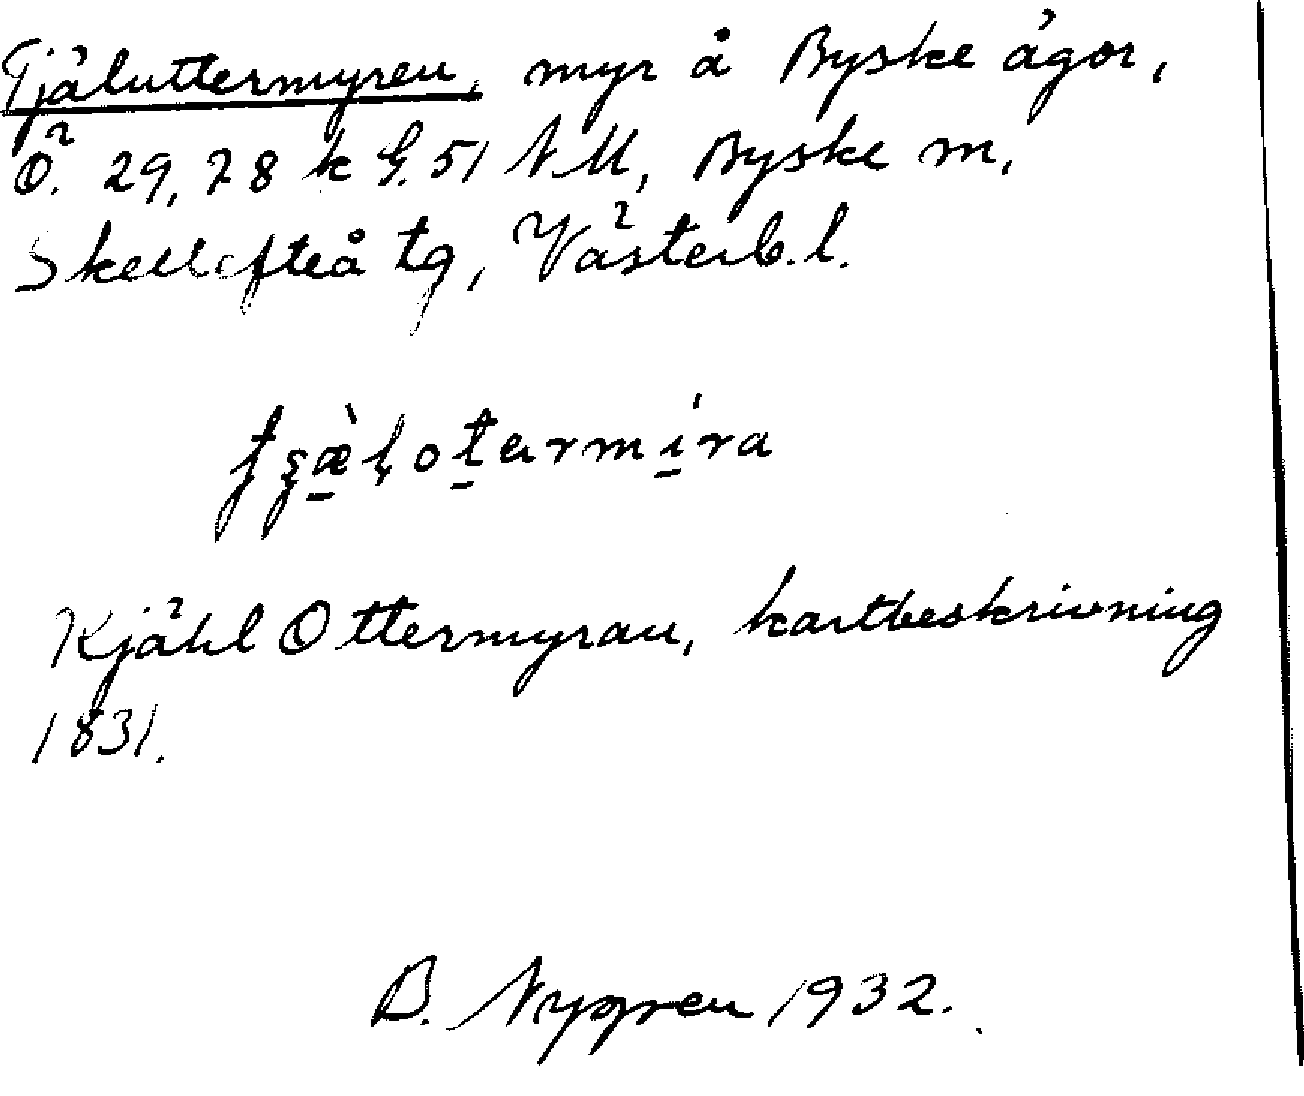 Tjäluttermyren, myr å Byske ägor,
Ö. 29, 28 k G. 51 NM, Byske m,
Skellefteå tg, Västerb. l.
Kjähl Ottermyran, kartbeskrivning
1831.
B. Nygren 1932.